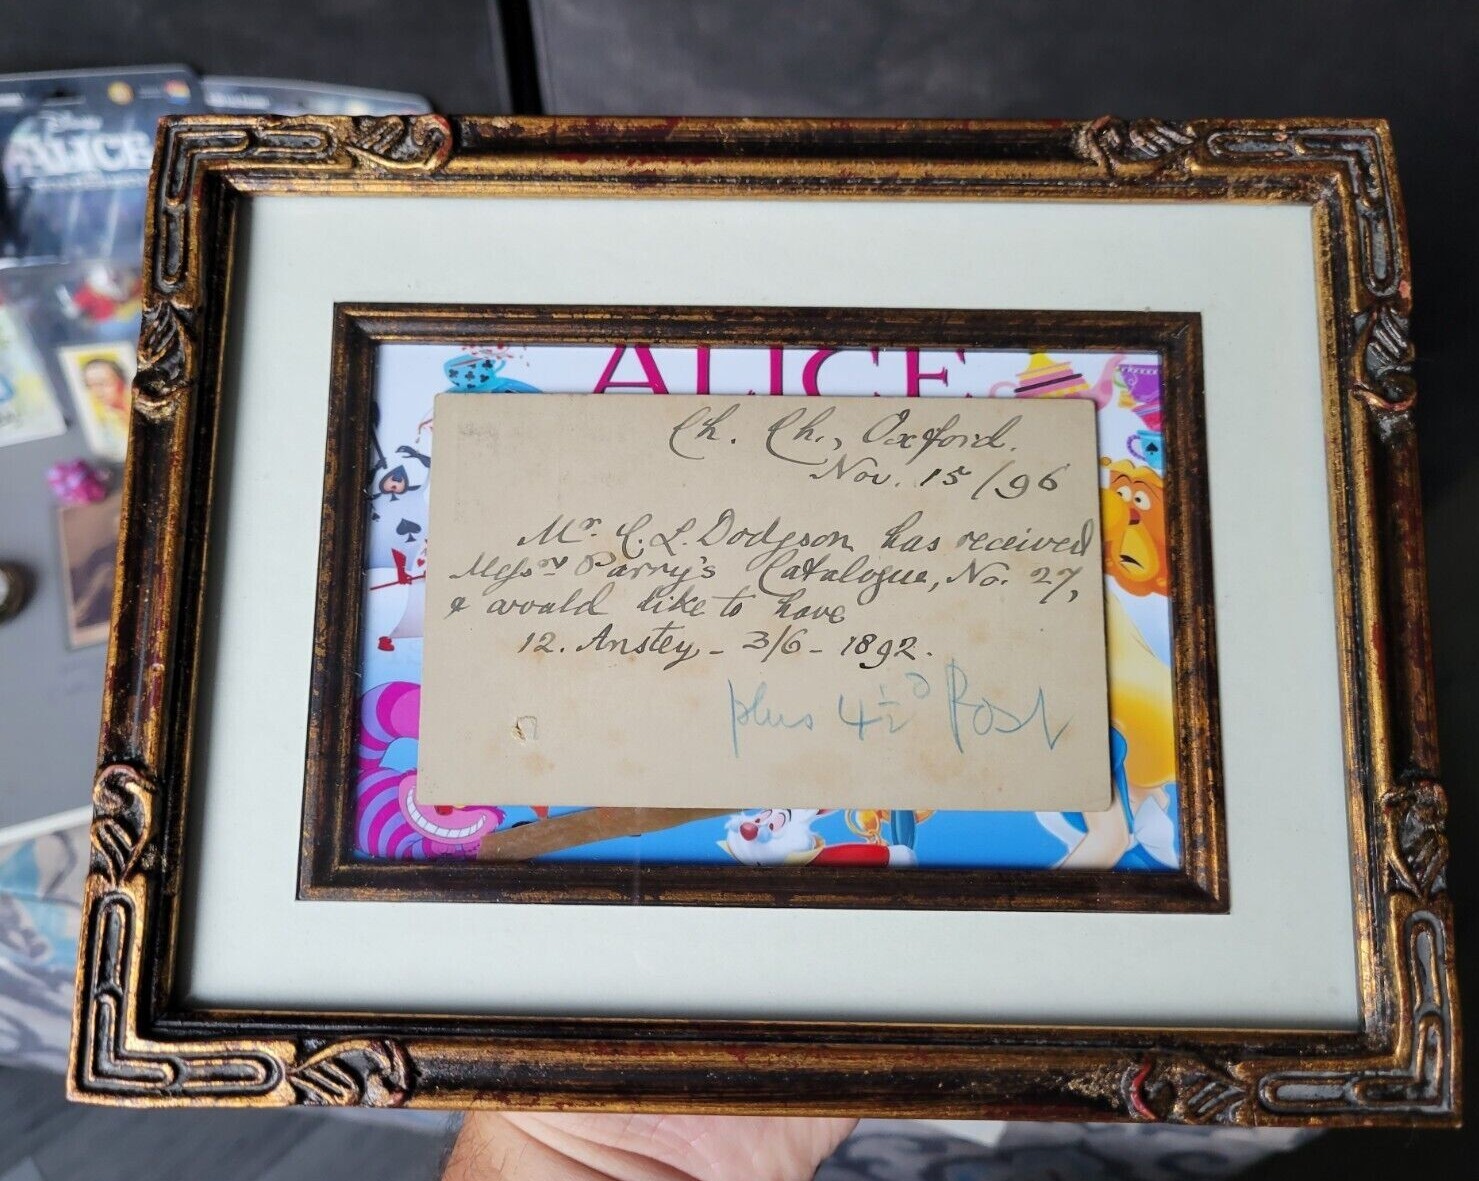 Disney
ALICE
ALICE
Ch. Ch., Oxford.
Nov. 15/96
Mr. C. L. Dodgson has received
Messrs Parry's Catalogue, No. 27,
& would like to have
12. Anstey - 3/6 - 1892.
plus 4½d Post